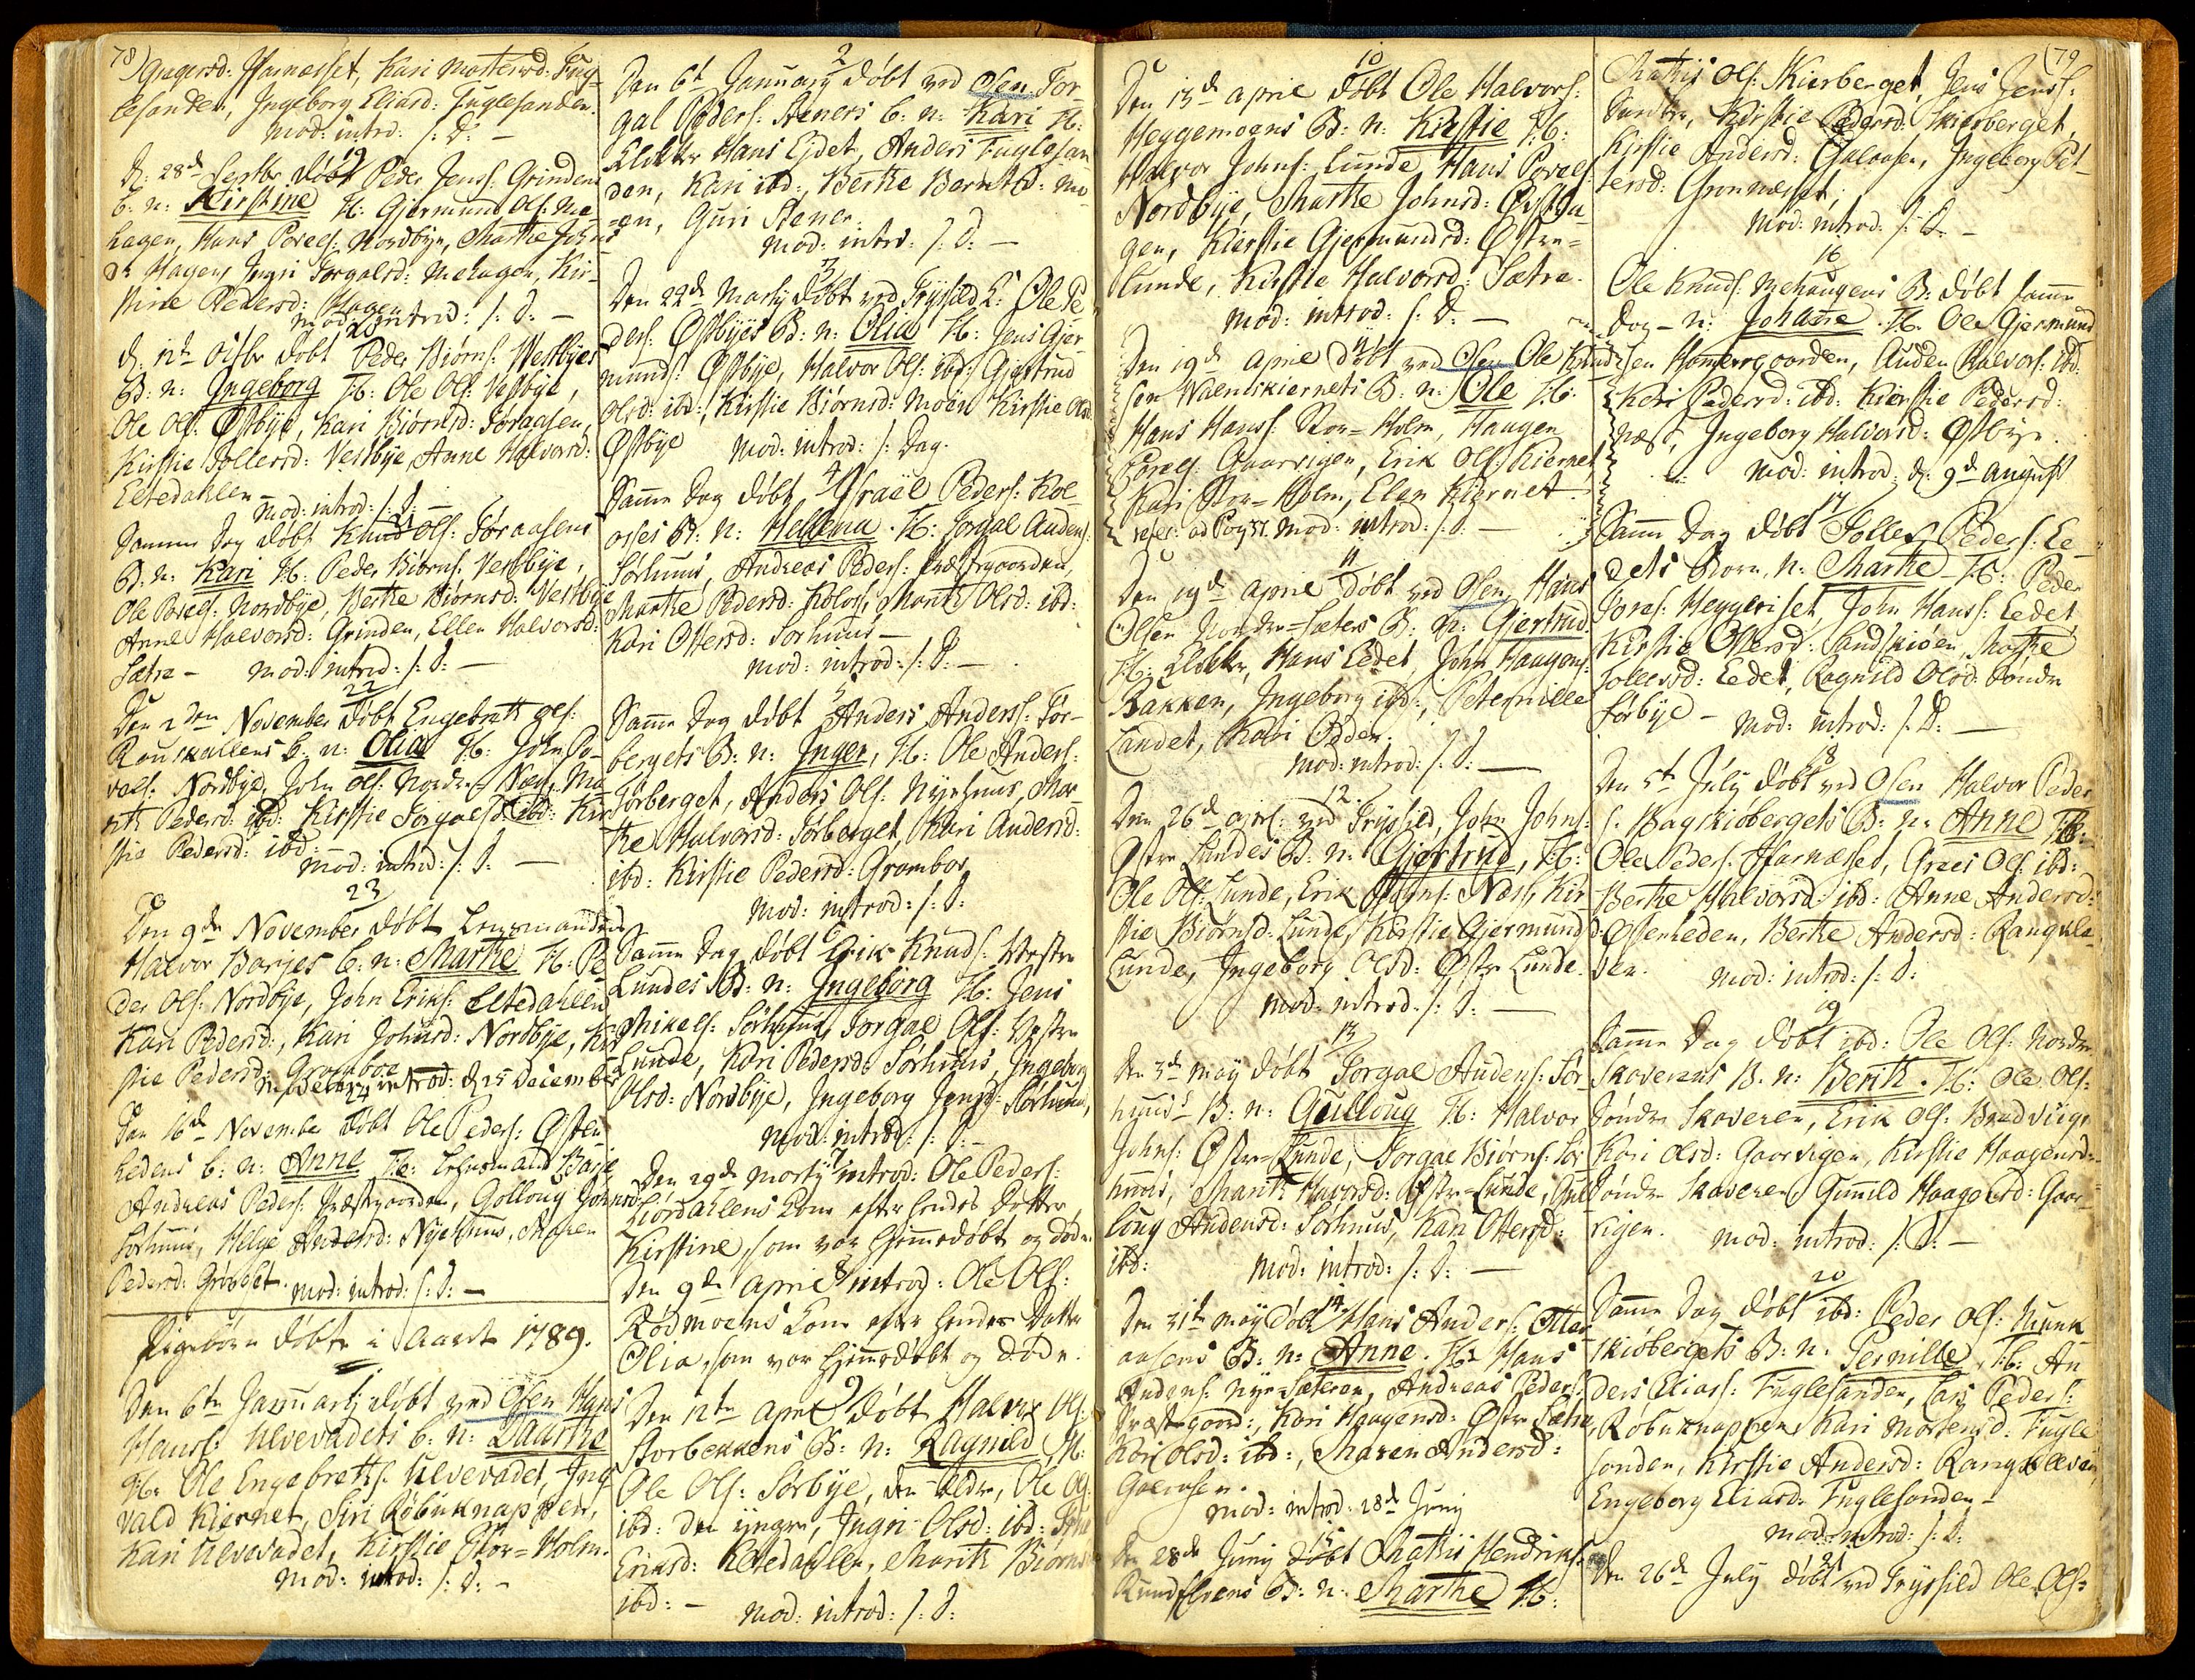 78) Gregersd: Harnæsset, Kari Mortensd: Fug-
lesanden, Ingeborg Eliasd: Fuglesanden.
mod: introd: s: D: -
19
d: 28de Septbr døbt Peder Jens: Grindens
b: n: Kirstine F: Gjermund Ols: Me-
hagen, Hans Povels: Nordbye, Marthe Johns
d: Hagen, Ingri Torgalsd: Mehagen, Kir-
stine Pedersd: Hagen
mod: introd: s: D: -
20
d: 12te Octbr døbt Peder Biørns: Westbyes
B: n: Ingeborg F: Ole Ols: Vestbye,
Ole Ols: Østbye, Kari Biørnsd: Føraasen,
Kirstie Tollersd: Vestbye, Anne Halvorsd:
Eltedahlen - mod: introd: s: D: -
21
Samme Dag døbt Knud Ols: Føraasens
B: n: Kari F: Peder Biørns: Vestbye,
Ole Povels: Nordbye, Berthe Biørnsd: Vestbye
Anne Halvorsd: Grinden, Ellen Halvorsd:
Sætre - mod: introd: s: D: -
22
Den 2den November døbt Engebreth Ols:
Rouskallens b: n: Olia F: John Po-
vels: Nordbye, John Ols: Nordre Næs, Ma-
rith Pedersd: ibd: Kirstie Torgalsd: ibd: Kir
stie Pedersd: ibd:
mod: introd: s: D: -
23
Den 9de November døbt Lensmanden
Halvor Barjes b: n: Marthe F: Pe
der Ols: Nordbye, John Eriks: Eltedahlen
Kari Pedersd:, Kari Johnsd: Nordbye, Kir
stie Pedersd: Gramboe
mod: introd: d 25 December
24
Den 16de November døbt Ole Peders: Østen
hedens b: n: Anne F: Lensmand Barje
Andreas Peders: Præstgaarden, Gollaug Johnsd:
Sørhuus, Helge Andersd: Nyehuus, Maren
Pedersd: Grønset. mod: introd: s: D: -
Pigebørn døbte i Aaret 1789.
Den 6te Januarij døbt ved Osen Hans
Hanss: Ulvevadets b: n: Marthe
F: Ole Engebreths: Ulvevadet, Ing
vald Kiernet, Siri Røbuknappen,
Kari Ulvevadet, Kirstie Stor-Holm.
mod: introd: s: D: -
2
Den 6te January døbt ved Osen Tor-
gal Peders: Steners b: n: Kari F:
Klokker Hans Ejdet, Anders Fuglesan
den, Kari ibd: Berthe Berntsd: Mo
-en, Guri Stener.
mod: introd: s: D: -
3
Den 22de Martij døbt ved Trysild K: Ole Pe
ders: Østbyes B: n: Olia F: Jens Gjer-
munds: Østbye, Halvor Ols: ibd: Gjertrud
Olsd: ibd:, Kirstie Biørnsd: Moen Kirstie Olsd
Østbye mod: introd: s: Dag.
4
Samme Dag døbt Israel Peders: Kol
osses B: n: Hellena. F: Torgal Audens:
Sørhuus, Andreas Peders: Præstgaarden,
Marthe Pedersd: Kolos, Marit Olsd: ibd:
Kari Ottersd: Sørhuus -
mod: introd: s: D: -
5
Samme Dag døbt Anders Anderss: Før-
bergets B: n: Inger, F: Ole Anders:
Førberget, Anders Ols: Nyehuus, Mar-
the Halvorsd: Førberget, Kari Andersd:
ibd: Kirstie Pedersd: Gramboe
mod: introd: s: D:
6
Samme Dag døbt Erik Knuds: Vestre
Lundes B: n: Ingeborg F: Jens
Mikels: Sørhuus, Torgal Ols: Vestre
Lunde, Kari Pedersd: Sørhuus, Ingeborg
Olsd: Nordbye, Ingeborg Jensd: Sørhuus,
mod: introd: s: D: -
7
Den 29de Martij introd: Ole Peders:
Liørdahlens Kone efter hendes Datter
Kirstine, som var hjemmedøbt og døde.
8
Den 9de April introd: Ole Ols:
Rødmoens Kone efter hendes Datter
Olia, som var hjemmedøbt og døde.
9
Den 12te April døbt Halvor Ols:
Storbekkens B: n: Ragnild, F:
Ole Ols: Sørbye, den ældre, Ole Ols:
ibd: den yngre, Ingri Olsd: ibd:
Eriksd: Eltedahlen, Marith Biørnsd
ibd: - mod: introd: s: D:
10
Den 13de April døbt Ole Halvors:
Heggemoens B: n: Kirstie F:
Halvor Johns: Lunde, Hans Povels:
Nordbye, Marthe Johnsd: Østha-
gen, Kierstie Gjermundsd: Østre-
Lunde, Kirstie Halvorsd: Sætre.
mod: introd: s: D: -
11
Den 19de April døbt ved Osen Ole Knud
sen Vaenskiernets B: n: Ole F:
Hans Hanss: Stor-Holm, Haagen
Povels: Gaarvigen, Erik Ols: Kiernet
Kari Stor-Holm, Elen Kiernet.
refer: ad Pag 51. mod: introd: s: D: -
11
Den 19de April døbt ved Osen Hans
Olsen Nordre-Sæters B: n: Gjertrud.
F: Klokker, Hans Eedet, John Haagens:
Bakken, Ingeborg ibd:, Peternille
Landet, Kari Odden.
mod: introd: s: D: -
12.
Den 26de April: ved Trysild, John Johns:
Østre Lundes B: n: Gjertrud, F:
Ole Ols: Lunde, Erik Hans: Næss, Kir
stie Biørnsd: Lunde, Kirstie Gjermundsd:
Lunde, Ingeborg Olsd: Østre Lunde.
mod: introd: s: D: -
13
Den 3de Maj døbt Torgal Audens: Sør
huus's B: n: Gulloug F: Halvor
Johns: Østre-Lunde, Torgal Biørns: Sør
huus, Marit Halvorsd: Østre-Lunde, Gul
loug Audensd: Sørhuus, Kari Ottersd:
ibd: mod: introd: s: D: -
14
Den 31te Maj døbt Hans Anders: Otter
aasens B: n: Anne. F: Hans
Andens: Nye Sæteren, Andreas Peders:
Præstegaard:, Kari Haagensd: Østre Sætre,
Kari Olsd: ibd:, Maren Andersd:
Galaasen.
mod: introd: 28de Junij
15
Den 28de Junij døbt Mathis Hendriks:
Rundfloens B: n: Marthe F:
(79
Mathis Ols: Kierberget, Jens Jenss:
Sundet, Kirstie Pedersd: Skierberget,
Kirstie Andersd: Galaasen, Ingeborg Pet-
tersd: Grønnæsset,
mod: introd: s: D: -
16
Ole Knuds: Mehaugens B: døbt samme
Dag - n: Johanne. F: Ole Gjermund
sen Hammergaarden, Auden Halvors: ibd:
Kari Pedersd: ibd: Kierstie Pedersd:
Næss, Ingeborg Halvorsd: Østbye.
mod: introd: d: 9de August
17
Samme Dag døbt Tollef Peders: Ee-
dets Barn, n: Marthe - F: Peder
Tores: Heggeriset, John Hanss: Eedet,
Kirstie Ottersd: Landskioen, Marthe
Tollevsd: Eedet, Ragnild Olsd: Søndre
Sørbye - mod: introd: s: D: -
18
Den 5te Julij døbt ved Osen Halvor Peder
s: Bagskiøbergets B: n: Anne F:
Ole Peders: Harnæsset, Græs Ols: ibd:
Berthe Halvorsd: ibd: Anne Andersd:
Østenheden, Berthe Andersd: Rangkle-
ven. mod: introd: s: D:
19
Samme Dag døbt ibd: Ole Ols: Nordre
Skoverens B: n: Berith. F: Ole Ols:
Søndre Skoveren, Erik Ols: Bredviig
Kari Olsd: Gaarvigen, Kirstie Haagensd:
Søndre Skoveren, Gunnild Haagensd: Gaar
vigen. mod: introd: s: D: -
20
Samme Dag døbt ibd: Peder Ols: Munk
skiøbergets B: n: Pernille, F: An
ders Eliass: Fuglesanden, Lars Peders:
Røbuknappen, Kari Mortensd: Fugle
sanden, Kirstie Andersd: Rangkleven,
Engeborg Eliasd: Fuglesanden -
mod: introd: s: D:
21
Den 26de Julij døbt ved Trysild Ole Ols: